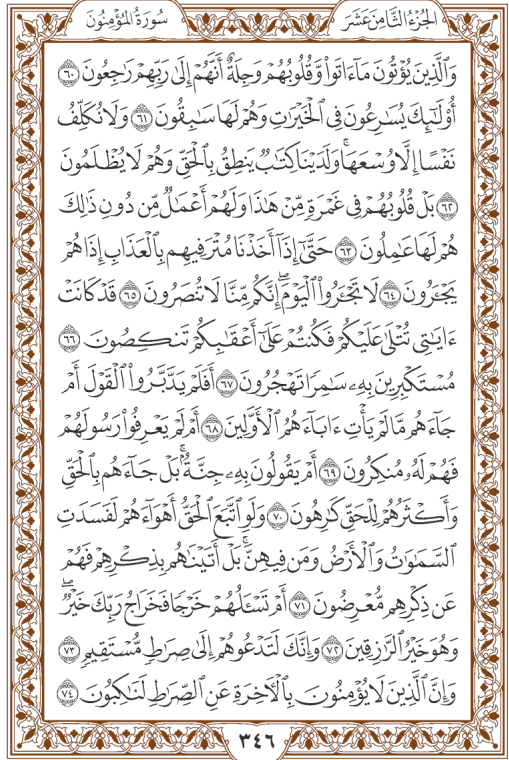 الجُزْءُ الثَّامِنَ عَشَرَ
سُورَةُ المُؤْمِنُونَ
وَالَّذِينَ يُؤْتُونَ مَآ ءَاتَوا۟ وَّقُلُوبُهُمْ وَجِلَةٌ أَنَّهُمْ إِلَىٰ رَبِّهِمْ رَٰجِعُونَ ٦٠
أُو۟لَٰٓئِكَ يُسَٰرِعُونَ فِى ٱلْخَيْرَٰتِ وَهُمْ لَهَا سَٰبِقُونَ ٦١ وَلَا نُكَلِّفُ
نَفْسًا إِلَّا وُسْعَهَا ۖ وَلَدَيْنَا كِتَٰبٌ يَنطِقُ بِٱلْحَقِّ ۚ وَهُمْ لَا يُظْلَمُونَ
٦٢ بَلْ قُلُوبُهُمْ فِى غَمْرَةٍ مِّنْ هَٰذَا وَلَهُمْ أَعْمَٰلٌ مِّن دُونِ ذَٰلِكَ
هُمْ لَهَا عَٰمِلُونَ ٦٣ حَتَّىٰٓ إِذَآ أَخَذْنَا مُتْرَفِيهِم بِٱلْعَذَابِ إِذَا هُمْ
يَجْـَٔرُونَ ٦٤ لَا تَجْـَٔرُوا۟ ٱلْيَوْمَ ۖ إِنَّكُم مِّنَّا لَا تُنصَرُونَ ٦٥ قَدْ كَانَتْ
ءَايَٰتِى تُتْلَىٰ عَلَيْكُمْ فَكُنتُمْ عَلَىٰٓ أَعْقَٰبِكُمْ تَنكِصُونَ ٦٦
مُسْتَكْبِرِينَ بِهِۦ سَٰمِرًا تَهْجُرُونَ ٦٧ أَفَلَمْ يَدَّبَّرُوا۟ ٱلْقَوْلَ أَمْ
جَآءَهُم مَّا لَمْ يَأْتِ ءَابَآءَهُمُ ٱلْأَوَّلِينَ ٦٨ أَمْ لَمْ يَعْرِفُوا۟ رَسُولَهُمْ
فَهُمْ لَهُۥ مُنكِرُونَ ٦٩ أَمْ يَقُولُونَ بِهِۦ جِنَّةٌۢ ۚ بَلْ جَآءَهُم بِٱلْحَقِّ
وَأَكْثَرُهُمْ لِلْحَقِّ كَٰرِهُونَ ٧٠ وَلَوِ ٱتَّبَعَ ٱلْحَقُّ أَهْوَآءَهُمْ لَفَسَدَتِ
ٱلسَّمَٰوَٰتُ وَٱلْأَرْضُ وَمَن فِيهِنَّ ۚ بَلْ أَتَيْنَٰهُم بِذِكْرِهِمْ فَهُمْ
عَن ذِكْرِهِم مُّعْرِضُونَ ٧١ أَمْ تَسْـَٔلُهُمْ خَرْجًا فَخَرَاجُ رَبِّكَ خَيْرٌ ۖ
وَهُوَ خَيْرُ ٱلرَّٰزِقِينَ ٧٢ وَإِنَّكَ لَتَدْعُوهُمْ إِلَىٰ صِرَٰطٍ مُّسْتَقِيمٍ ٧٣
وَإِنَّ ٱلَّذِينَ لَا يُؤْمِنُونَ بِٱلْءَاخِرَةِ عَنِ ٱلصِّرَٰطِ لَنَٰكِبُونَ ٧٤
٣٤٦